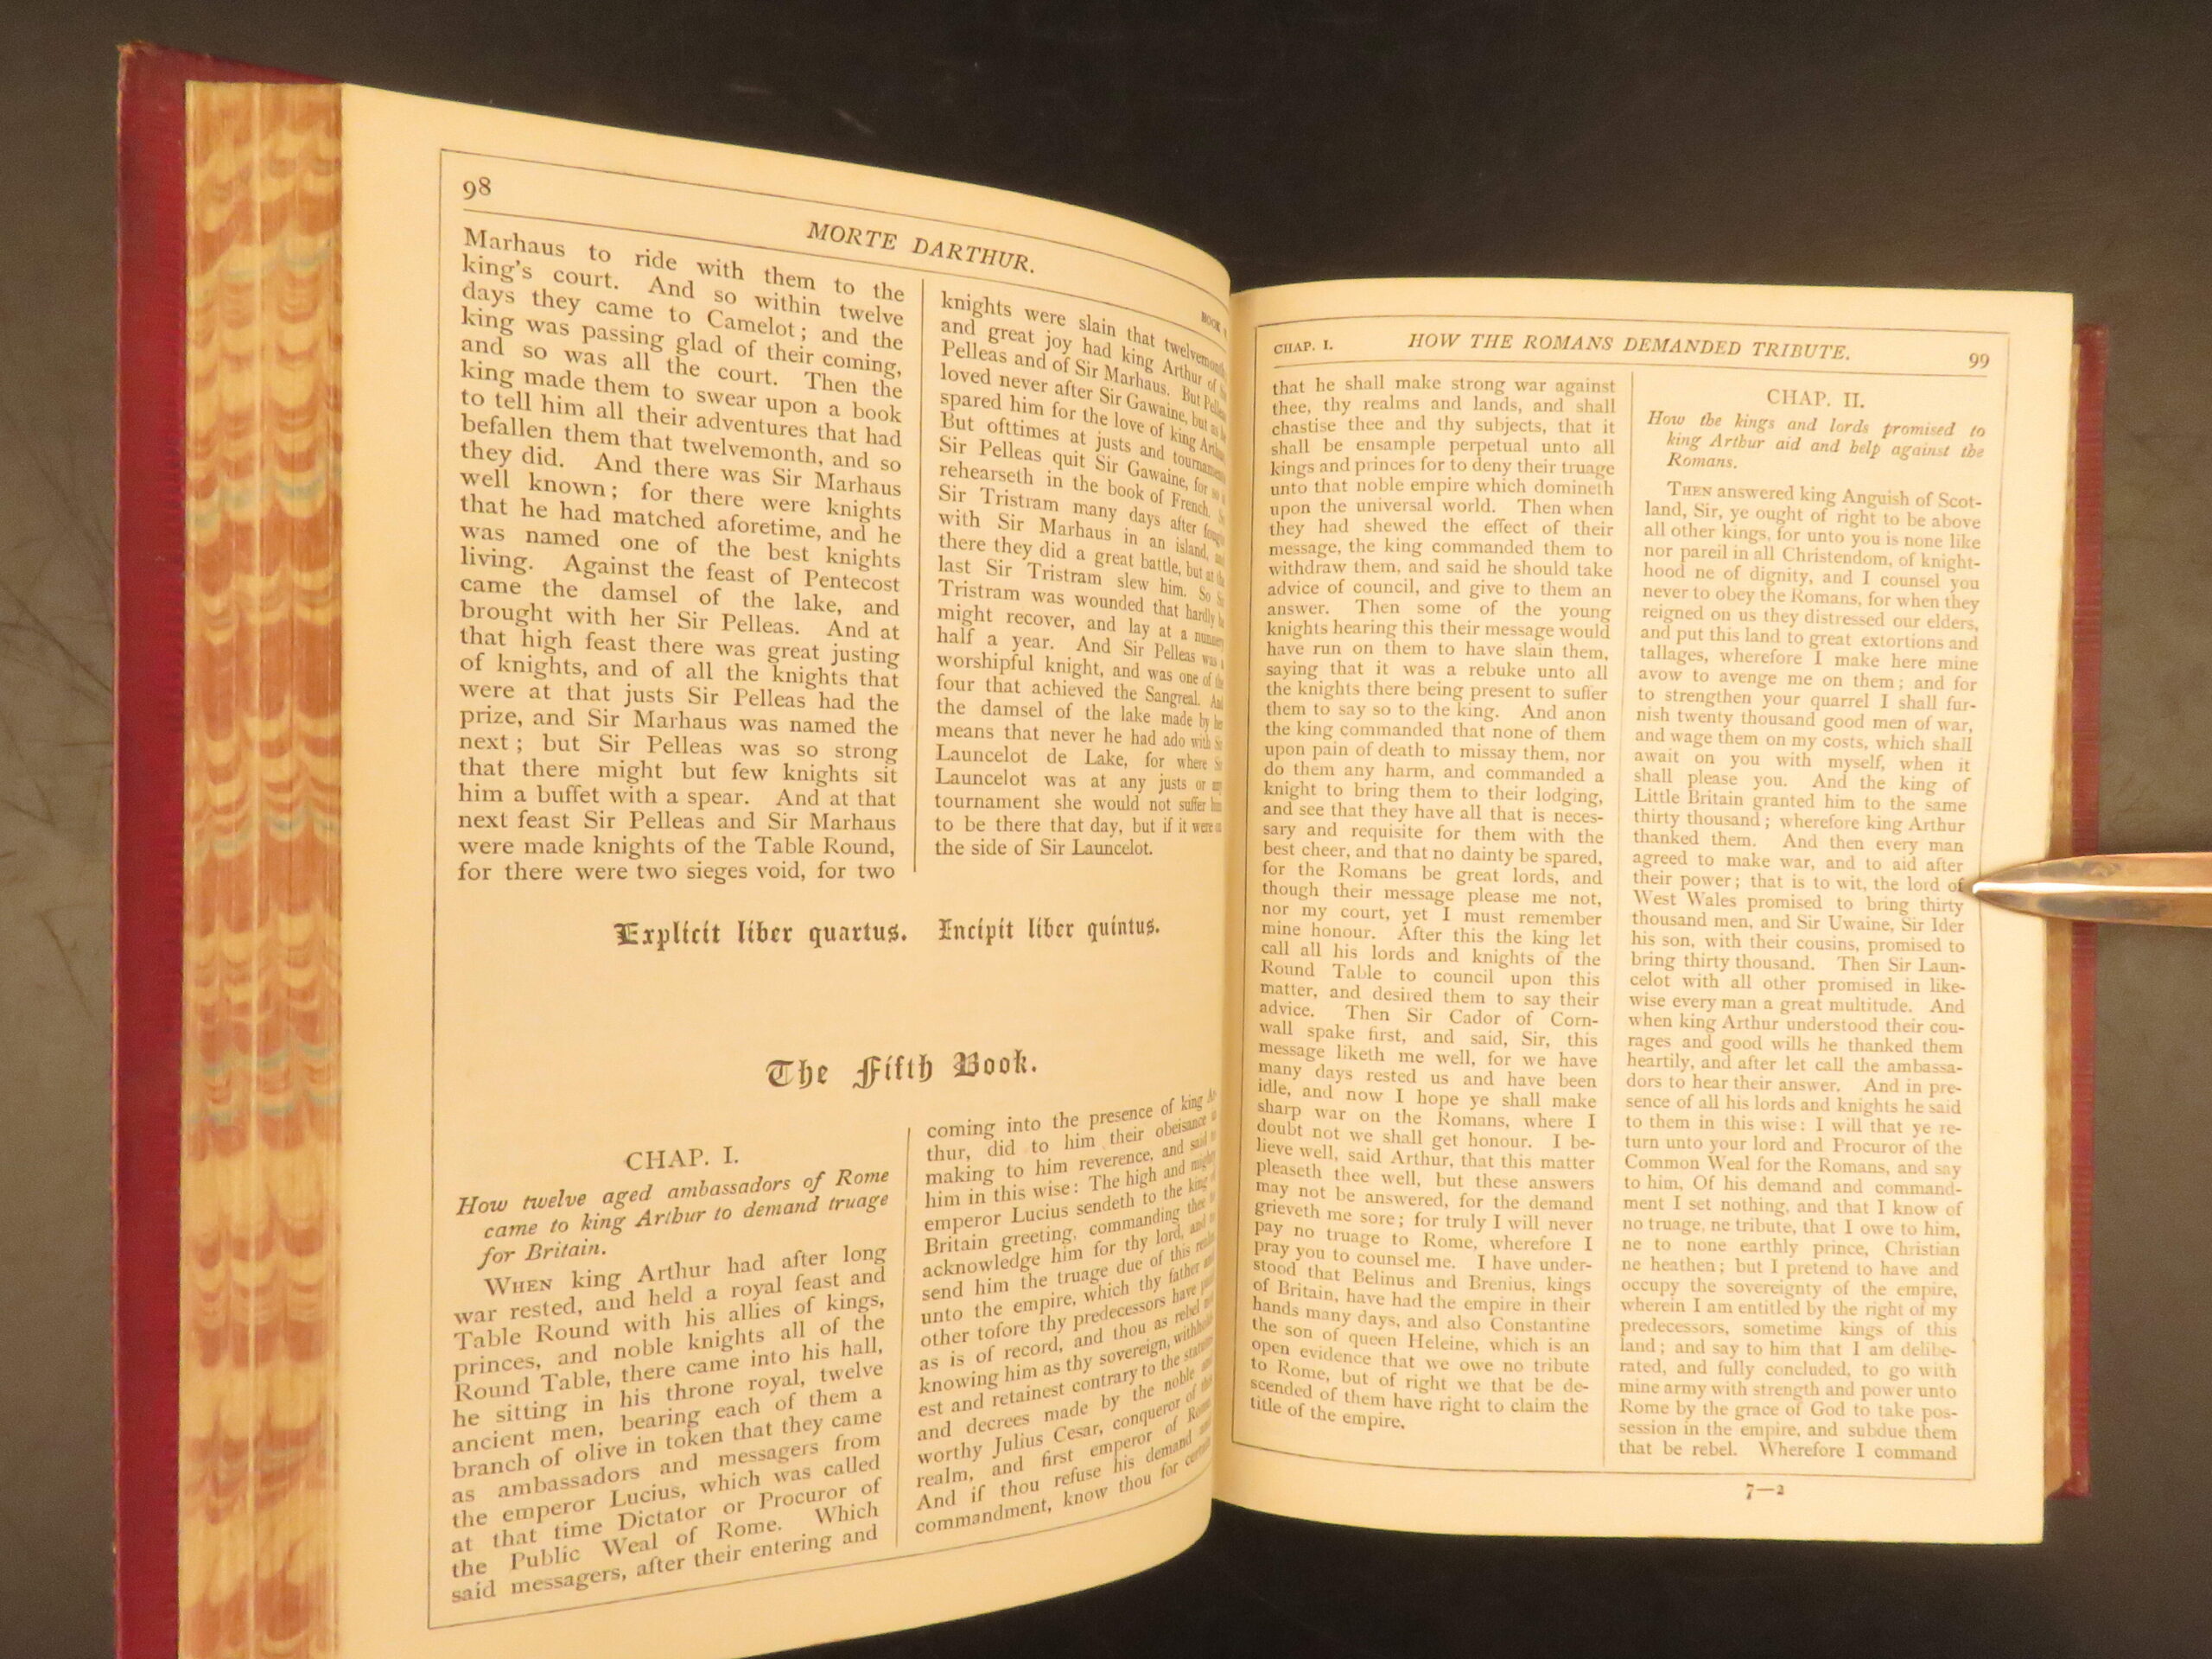 98
MORTE DARTHUR.
BOOK
Marhaus to ride with them to the
king's court. And so within twelve
days they came to Camelot; and the
king was passing glad of their coming,
and so was all the court. Then the
king made them to swear upon a book
to tell him all their adventures that had
befallen them that twelvemonth, and so
they did. And there was Sir Marhaus
well known; for there were knights
that he had matched aforetime, and he
was named one of the best knights
living. Against the feast of Pentecost
came the damsel of the lake, and
brought with her Sir Pelleas. And at
that high feast there was great justing
of knights, and of all the knights that
were at that justs Sir Pelleas had the
prize, and Sir Marhaus was named the
next; but Sir Pelleas was so strong
that there might but few knights sit
him a buffet with a spear. And at that
next feast Sir Pelleas and Sir Marhaus
were made knights of the Table Round,
for there were two sieges void, for two
knights were slain that twelvemonth,
and great joy had king Arthur of
Pelleas and of Sir Marhaus. But Pelleas
loved never after Sir Gawaine, but as he
spared him for the love of king Arthur.
But ofttimes at justs and tournaments
Sir Pelleas quit Sir Gawaine, for so it
rehearseth in the book of French. So
Sir Tristram many days after fought
with Sir Marhaus in an island, and
there they did a great battle, but at the
last Sir Tristram slew him. So Sir
Tristram was wounded that hardly he
might recover, and lay at a nunnery
half a year. And Sir Pelleas was a
worshipful knight, and was one of the
four that achieved the Sangreal. And
the damsel of the lake made by her
means that never he had ado with Sir
Launcelot de Lake, for where Sir
Launcelot was at any justs or any
tournament she would not suffer him
to be there that day, but if it were on
the side of Sir Launcelot.
Explicit liber quartus. Incipit liber quintus.
The Fifth Book.
CHAP. I.
How twelve aged ambassadors of Rome
came to king Arthur to demand truage
for Britain.
WHEN king Arthur had after long
war rested, and held a royal feast and
Table Round with his allies of kings,
princes, and noble knights all of the
Round Table, there came into his hall,
he sitting in his throne royal, twelve
ancient men, bearing each of them a
branch of olive in token that they came
as ambassadors and messagers from
the emperor Lucius, which was called
at that time Dictator or Procuror of
the Public Weal of Rome. Which
said messagers, after their entering and
coming into the presence of king Ar-
thur, did to him their obeisance in
making to him reverence, and said to
him in this wise: The high and mighty
emperor Lucius sendeth to the king of
Britain greeting, commanding thee to
acknowledge him for thy lord, and to
send him the truage due of this realm
unto the empire, which thy father and
other tofore thy predecessors have paid
as is of record, and thou as rebel not
knowing him as thy sovereign, withhold-
est and retainest contrary to the statutes
and decrees made by the noble and
worthy Julius Cesar, conqueror of this
realm, and first emperor of Rome.
And if thou refuse his demand and
commandment, know thou for certain
CHAP. I.
HOW THE ROMANS DEMANDED TRIBUTE.
99
that he shall make strong war against
thee, thy realms and lands, and shall
chastise thee and thy subjects, that it
shall be ensample perpetual unto all
kings and princes for to deny their truage
unto that noble empire which domineth
upon the universal world. Then when
they had shewed the effect of their
message, the king commanded them to
withdraw them, and said he should take
advice of council, and give to them an
answer. Then some of the young
knights hearing this their message would
have run on them to have slain them,
saying that it was a rebuke unto all
the knights there being present to suffer
them to say so to the king. And anon
the king commanded that none of them
upon pain of death to missay them, nor
do them any harm, and commanded a
knight to bring them to their lodging,
and see that they have all that is neces-
sary and requisite for them with the
best cheer, and that no dainty be spared,
for the Romans be great lords, and
though their message please me not,
nor my court, yet I must remember
mine honour. After this the king let
call all his lords and knights of the
Round Table to council upon this
matter, and desired them to say their
advice. Then Sir Cador of Corn-
wall spake first, and said, Sir, this
message liketh me well, for we have
many days rested us and have been
idle, and now I hope ye shall make
sharp war on the Romans, where I
doubt not we shall get honour. I be-
lieve well, said Arthur, that this matter
pleaseth thee well, but these answers
may not be answered, for the demand
grieveth me sore; for truly I will never
pay no truage to Rome, wherefore I
pray you to counsel me. I have under-
stood that Belinus and Brenius, kings
of Britain, have had the empire in their
hands many days, and also Constantine
the son of queen Heleine, which is an
open evidence that we owe no tribute
to Rome, but of right we that be de-
scended of them have right to claim the
title of the empire.
CHAP. II.
How the kings and lords promised to
king Arthur aid and help against the
Romans.
THEN answered king Anguish of Scot-
land, Sir, ye ought of right to be above
all other kings, for unto you is none like
nor pareil in all Christendom, of knight-
hood ne of dignity, and I counsel you
never to obey the Romans, for when they
reigned on us they distressed our elders,
and put this land to great extortions and
tallages, wherefore I make here mine
avow to avenge me on them; and for
to strengthen your quarrel I shall fur-
nish twenty thousand good men of war,
and wage them on my costs, which shall
await on you with myself, when it
shall please you. And the king of
Little Britain granted him to the same
thirty thousand; wherefore king Arthur
thanked them. And then every man
agreed to make war, and to aid after
their power; that is to wit, the lord of
West Wales promised to bring thirty
thousand men, and Sir Uwaine, Sir Ider
his son, with their cousins, promised to
bring thirty thousand. Then Sir Laun-
celot with all other promised in like-
wise every man a great multitude. And
when king Arthur understood their cou-
rages and good wills he thanked them
heartily, and after let call the ambassa-
dors to hear their answer. And in pre-
sence of all his lords and knights he said
to them in this wise: I will that ye re-
turn unto your lord and Procuror of the
Common Weal for the Romans, and say
to him, Of his demand and command-
ment I set nothing, and that I know of
no truage, ne tribute, that I owe to him,
ne to none earthly prince, Christian
ne heathen; but I pretend to have and
occupy the sovereignty of the empire,
wherein I am entitled by the right of my
predecessors, sometime kings of this
land; and say to him that I am delibe-
rated, and fully concluded, to go with
mine army with strength and power unto
Rome by the grace of God to take pos-
session in the empire, and subdue them
that be rebel. Wherefore I command
7—2